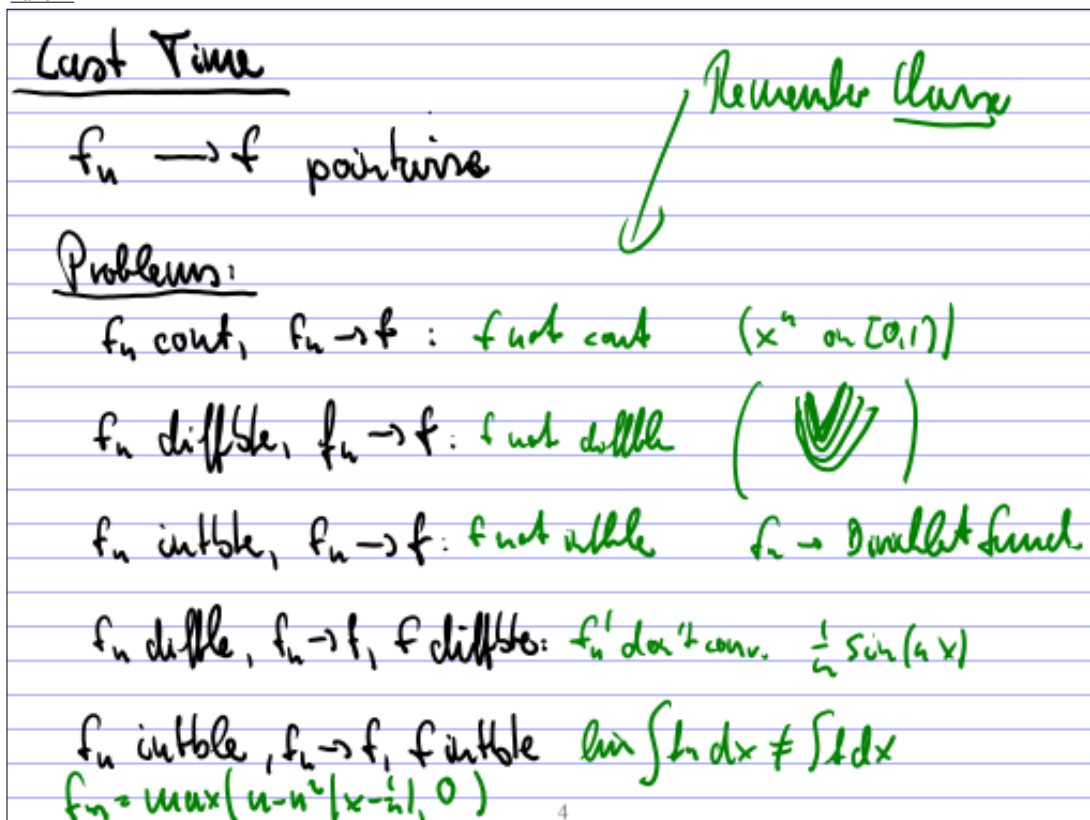 Last Time
Remember
f_n → f pointwise
Problems:
f_n cont, f_n → f : f not cont (x^n on [0,1])
f_n diffble, f_n → f : f not diffble
f_n intble, f_n → f : f not intble f_n → Dirichlet funct
f_n diffle, f_n → f, f diffble: f_n' don't conv. 1/n sin(n x)
f_n intble, f_n → f, f intble lim ∫ f_n dx ≠ ∫ f dx
f_n = max(n - n²|x - 1/n|, 0)
4